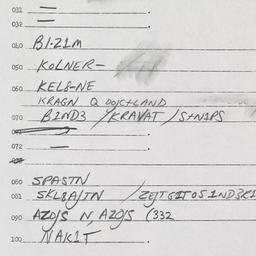 031 = .
032 = .
040 B1.21M
050 KOLNER-
060 KEL8-NE
KRAGN Q DOJC+LAND
070 B2ND3 /KRAVAT /S+N1PS
072 - .
080 SPASTN
081 SKL8AJTN /ZEJTG2TOS1ND3K1
090 AZO/S N, AZO/S (332
100 NAK1T .